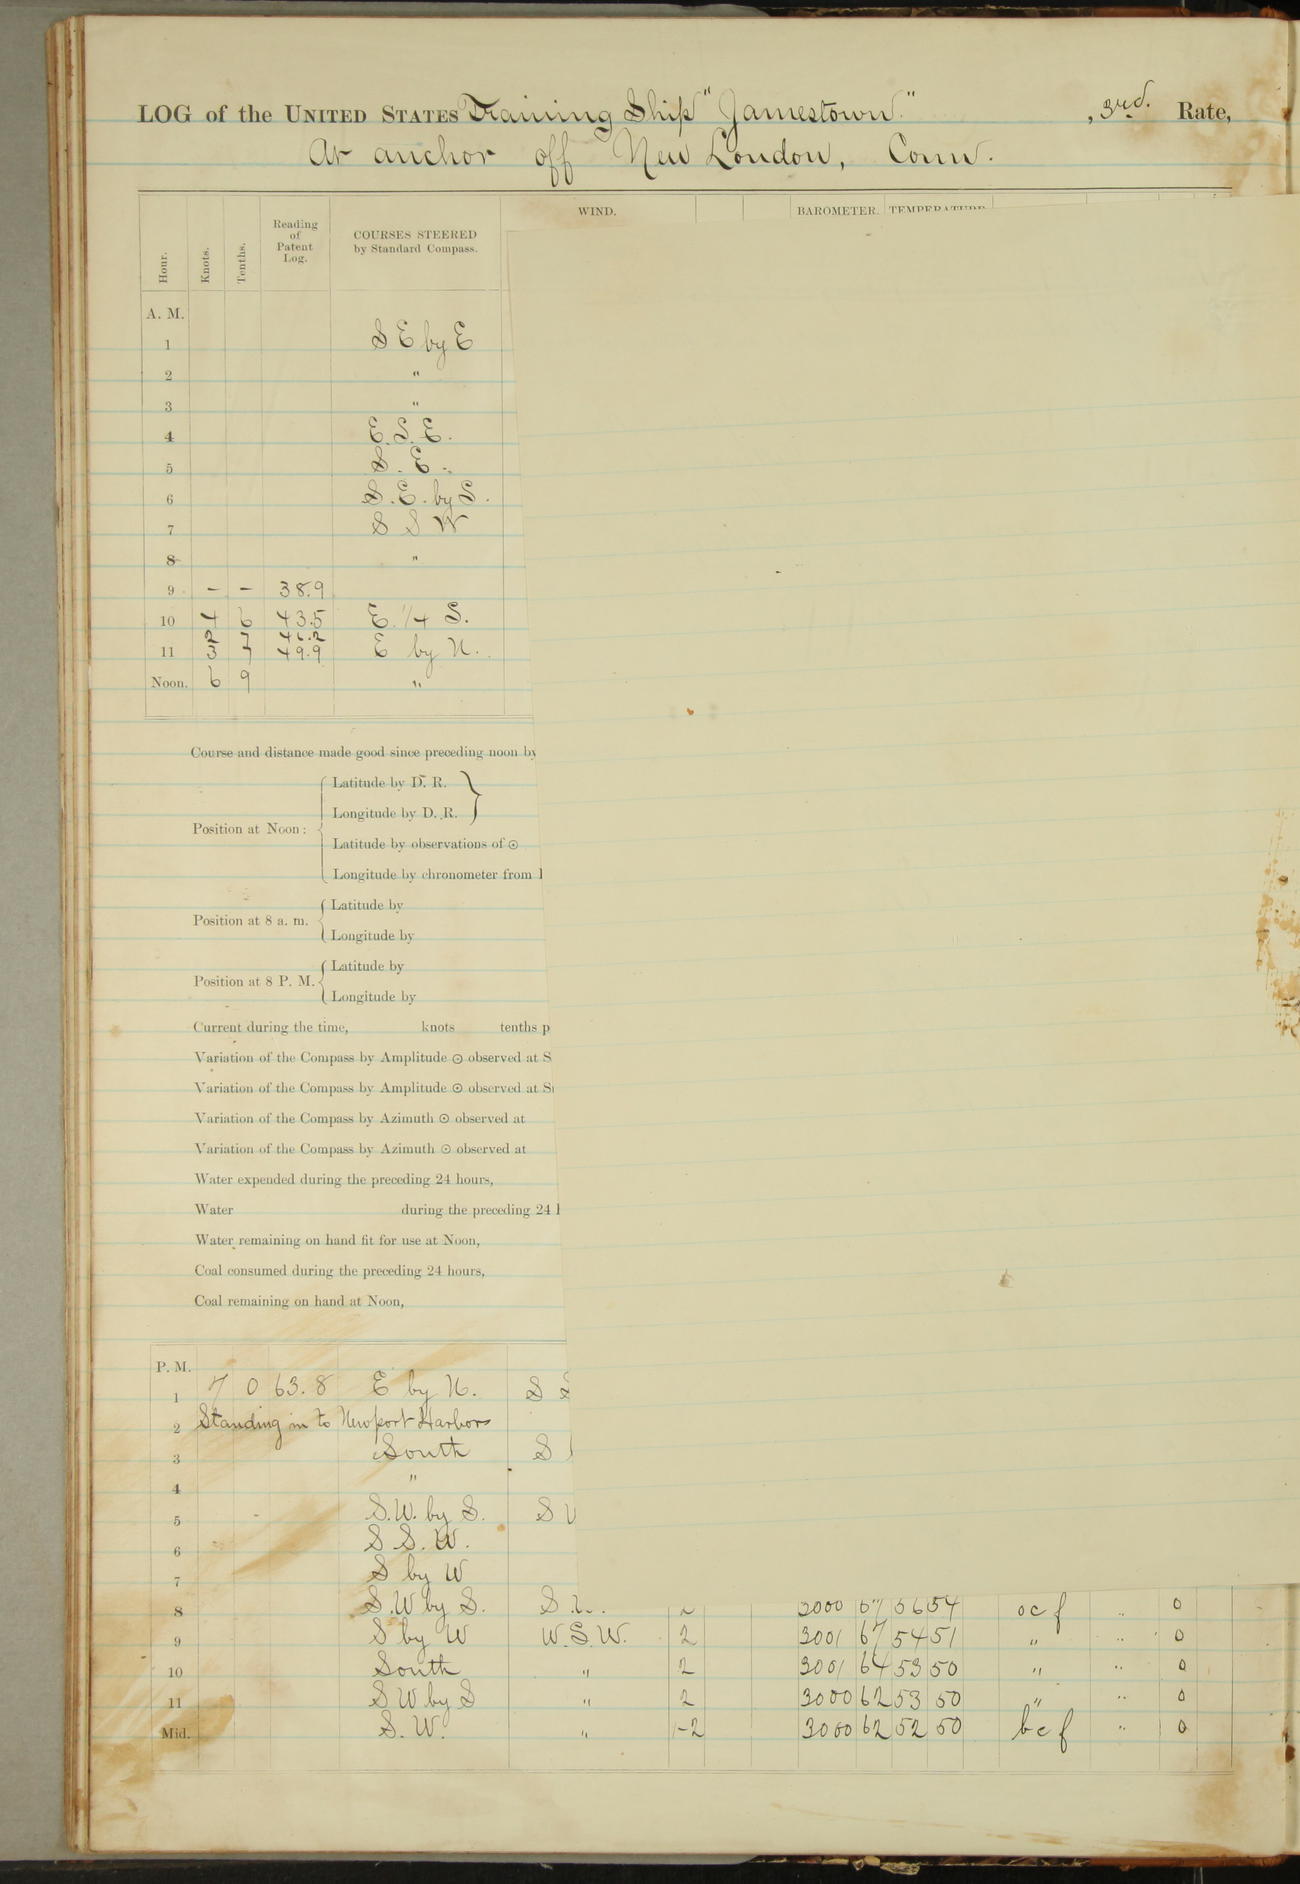 LOG of the UNITED STATES Training Ship "Jamestown" , 3rd. Rate,
At anchor off New London, Conn.
WIND. BAROMETER. TEMPERATURE
Hour. Knots. Tenths. Reading of Patent Log. COURSES STEERED by Standard Compass.
A. M.
1 S E by E
2 "
3 "
4 E. S. E.
5 S. E.
6 S. E. by S.
7 S S W
8 "
9 - - 38.9
10 4 6 43.5 E. 1/4 S.
2 7 46.2
11 3 7 49.9 E by N.
Noon. 6 9 "
Course and distance made good since preceding noon by
Position at Noon: Latitude by D. R.
Longitude by D. R.
Latitude by observations of ☉
Longitude by chronometer from
Position at 8 a. m. Latitude by
Longitude by
Position at 8 P. M. Latitude by
Longitude by
Current during the time, knots tenths p
Variation of the Compass by Amplitude ☉ observed at S
Variation of the Compass by Amplitude ☉ observed at S
Variation of the Compass by Azimuth ☉ observed at
Variation of the Compass by Azimuth ☉ observed at
Water expended during the preceding 24 hours,
Water during the preceding 24
Water remaining on hand fit for use at Noon,
Coal consumed during the preceding 24 hours,
Coal remaining on hand at Noon,
P. M.
1 7 0 63.8 E by N. S
2 Standing in to Newport Harbor
3 South S
4 "
5 S.W. by S. S
6 S S. W.
7 S by W
8 S.W by S. S 2 3000 67 56 54 ocf " 0
9 S by W W.S.W. 2 3001 67 54 51 " " 0
10 South " 2 3001 64 53 50 " " 0
11 S W by S " 2 3000 62 53 50 " " 0
Mid. S. W. " 1-2 3000 62 52 50 bcf " 0